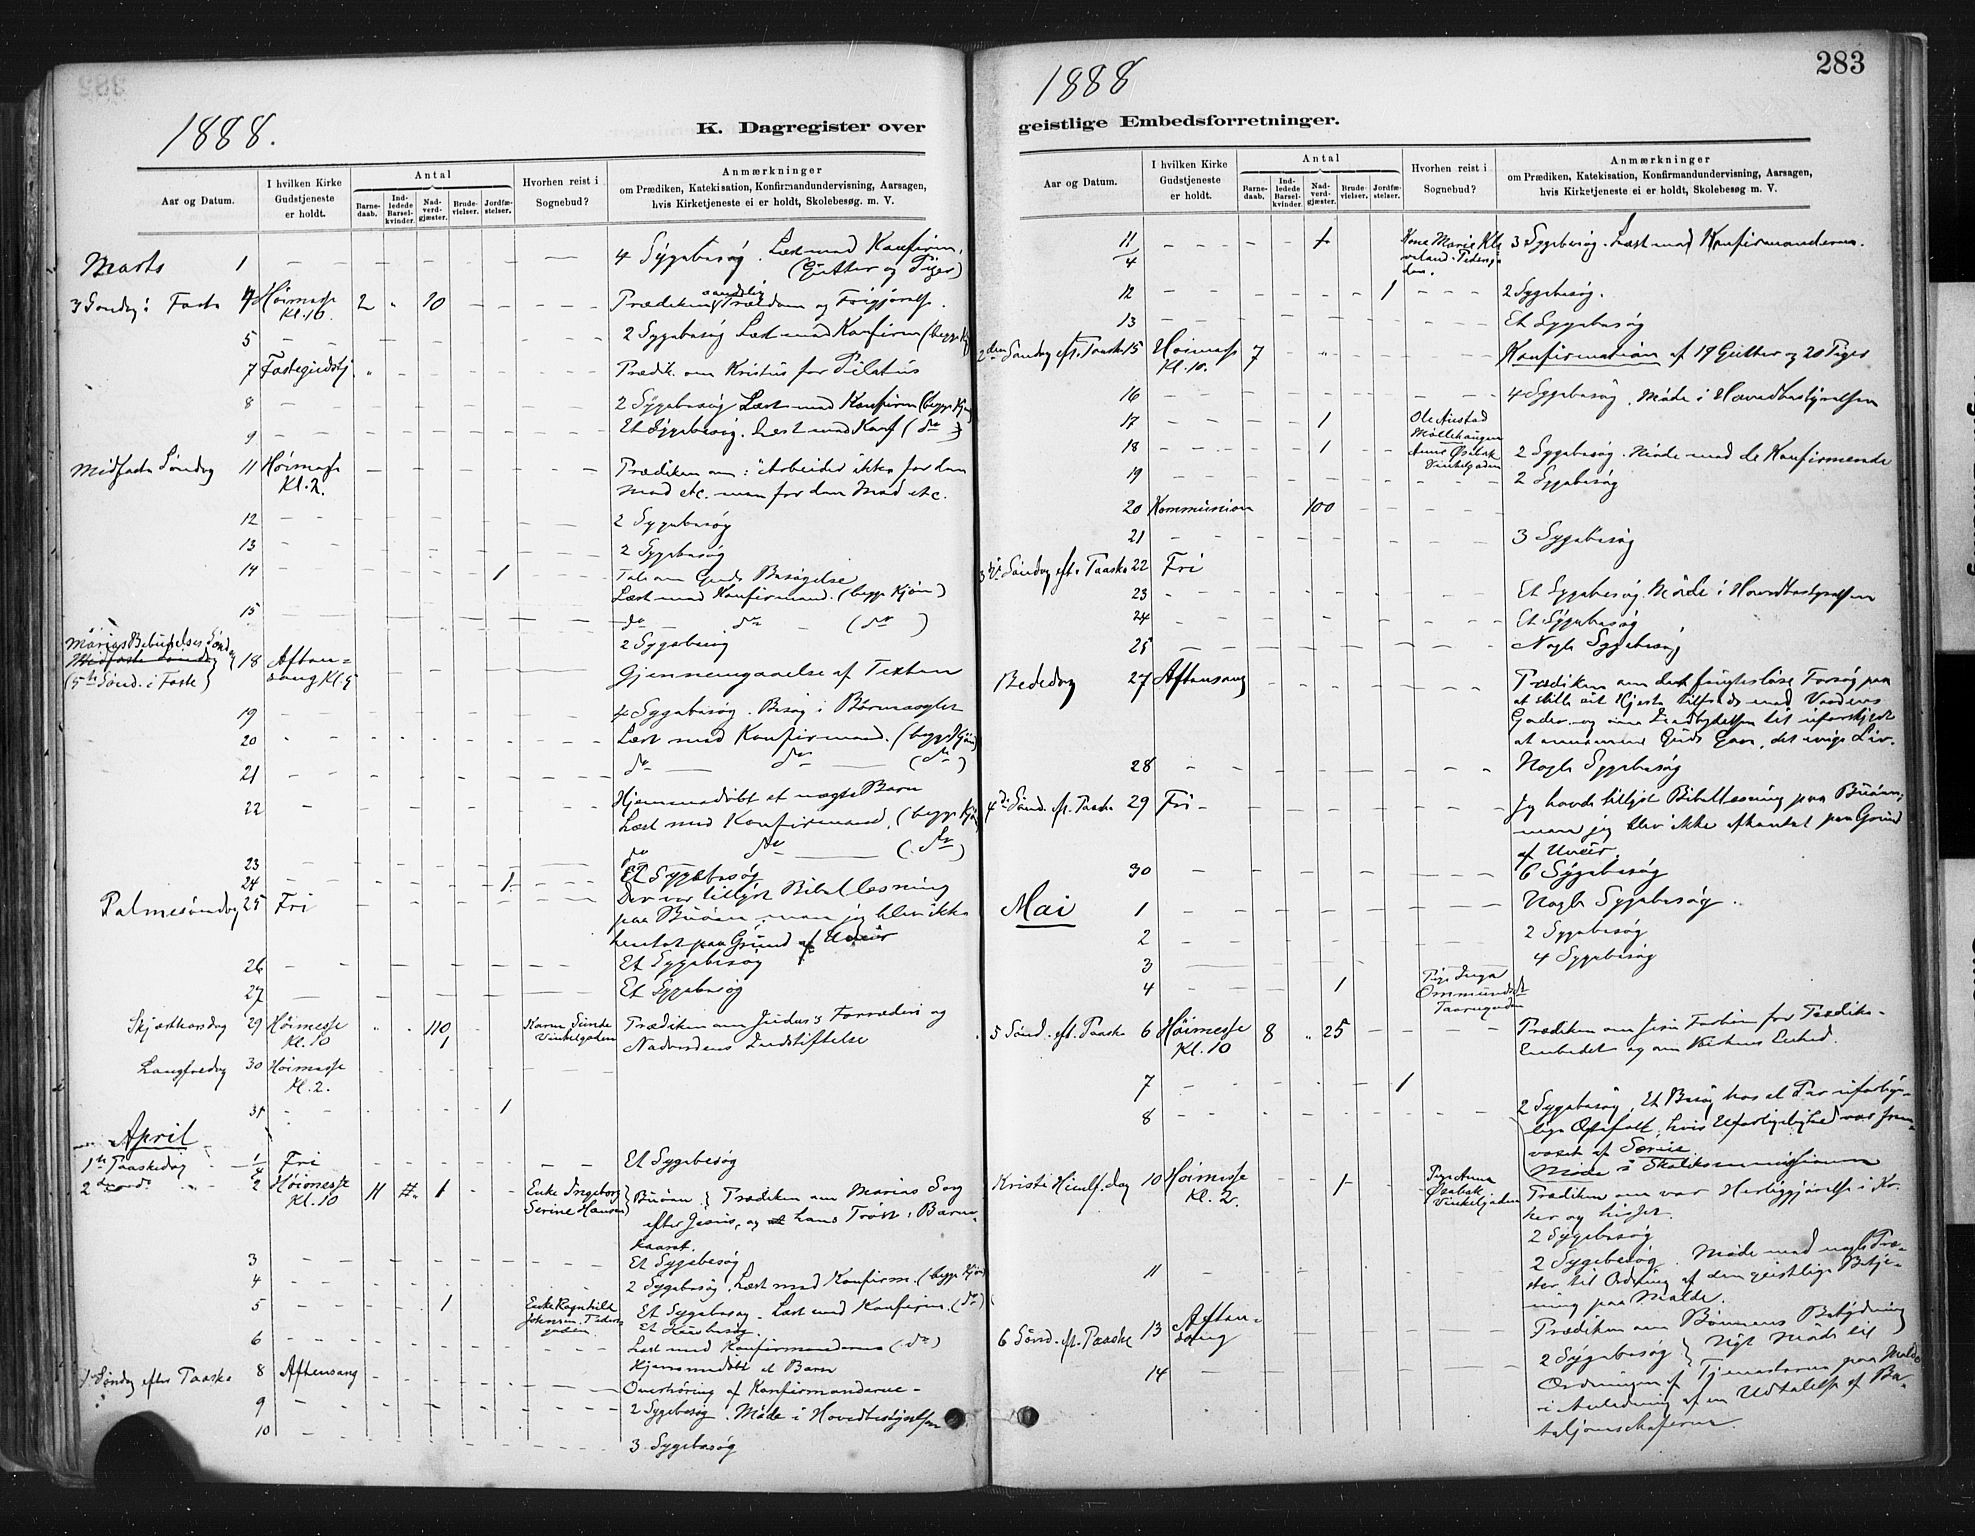 283
1888.
K. Dagregister over
Aar og Datum.
I hvilken Kirke Gudstjeneste er holdt.
Antal
Barnedaab.
Indledede Barselkvinder.
Nadverdgjæster.
Brudevielser.
Jordfæstelser.
Hvorhen reist i Sognebud?
Anmærkninger
om Prædiken, Katekisation, Konfirmandundervisning, Aarsagen,
hvis Kirketjeneste ei er holdt, Skolebesøg. m. V.
Marts 1 4 Sygebesøg. Læst med Konfirm.
(Gutter og Piger)
3 Søndag i Faste 4 Høimesse Kl. 10 2 " 20 Prædiken, aandelig Trældom og Frigjørelse
5 2 Sygebesøg Læst med Konfirm (begge Kjøn
7 Fastegudstj. " Prædik. om Kristus for Pilatus
8 2 Sygebesøg Læst med Konfirm (begge Kjøn
9 Et Sygebesøg. Læst med Konf (do)
Midfaste Søndag 11 Høimesse Kl. 2. Prædiken om: "Arbeider ikke for den
Mad etc. men for den Mad etc.
12 2 Sygebesøg
13 2 Sygebesøg
14 1 Tale om Guds Besøgelse
Læst med Konfirmand. (begge Kjøn)
15 do do (do)
Mariæ Bebudelses Søndag
Midfaste Søndag 18 Aftensang Kl. 5 2 Sygebesøg
(5te Sønd. i Faste) Gjennemgaaelse af Texten
19 4 Sygebesøg. Besøg i Børneasylet
20 Læst med Konfirmand. (begge Kjøn)
21 do do (do)
22 Hjemmedøbt et uægte Barn
Læst med Konfirmand. (begge Kjøn
23 do do (do)
24 1 Et Sygebesøg
Palmesøndag 25 Fri Der var tillyst Bibellæsning
paa Buøen, men jeg blev ikke
hentet paa Grund af Uveir
26 Et Sygebesøg
27 Et Sygebesøg
Skjærthorsdag 29 Høimesse Kl. 10 " " 110 1 Karen Sunde Vinkelgaden Prædiken om Judas's Forræderi og
Nadverdens Indstiftelse
Langfredag 30 Høimesse Kl. 2.
31 1
April
1ste Paaskedag 1/4 Fri Et Sygebesøg
2den do 2 Høimesse Kl. 10 11 1 Enke Ingeborg Serine Hansen Buøen Prædiken om Marias Sorg
efter Jesus, og hans Trøst i Barne-
kaaret.
3 Et Sygebesøg
4 2 Sygebesøg. Læst med Konfirm. (begge Kjøn
5 1 Enke Ragnhild Johnsen. Pedersgaden Et Sygebesøg. Læst med Konfirm. (do)
Et Husbesøg
6 Læst med Konfirmanderne (do)
Hjemmedøbt et Barn
1. Søndag efter Paaske 8 Aftensang Overhøring af Konfirmanderne
9 2 Sygebesøg. Møde i Hovedbestyrelsen
10 3 Sygebesøg
1888
geistlige Embedsforretninger.
Aar og Datum.
I hvilken Kirke Gudstjeneste er holdt.
Antal
Barnedaab.
Indledede Barselkvinder.
Nadverdgjæster.
Brudevielser.
Jordfæstelser.
Hvorhen reist i Sognebud?
Anmærkninger
om Prædiken, Katekisation, Konfirmandundervisning, Aarsagen,
hvis Kirketjeneste ei er holdt, Skolebesøg m. V.
11/4 1 Kone Marie 3 Sygebesøg. Læst med Konfirmanderne.
12 1 2 Sygebesøg.
13 Et Sygebesøg
2den Søndag eft. Paaske 15 Høimesse Kl. 10. 7 " Konfirmation af 19 Gutter og 20 Piger
16 4 Sygebesøg. Møde i Hovedbestyrelsen
17 1 Ole Austad Møllehaugen
18 1 Anne Østbøk Vinkelgaden 2 Sygebesøg. Møde med de Konfirmerede
19 2 Sygebesøg
20 Kommunion 100
21 3 Sygebesøg
3die Søndag eft. Paaske 22 Fri
23 Et Sygebesøg. Møde i Hovedbestyrelsen
24 Et Sygebesøg
25 Nogle Sygebesøg
Bededag 27 Aftensang Prædiken om det frugtesløse Forsøg paa
at stille sit Hjerte tilfreds med Verdens
Goder og om Indbydelsen til uforskyldt
at annamme Guds Gave, det evige Liv.
28 Nogle Sygebesøg
4de Sønd. eft. Paaske 29 Fri Jeg havde tillyst Bibellæsning paa Buøen,
men jeg blev ikke afhentet paa Grund
af Uveir
30 6 Sygebesøg
Mai 1 Nogle Sygebesøg.
2 2 Sygebesøg
3 4 Sygebesøg
4 1 Pige Inga Ommundsdt. Taarngaden
5 Sønd. eft. Paaske 6 Høimesse Kl. 10 8 " 25 Prædiken om Jesu Forbøn for Prædike-
Embedet og om Kirkens Enhed.
7 1
8 2 Sygebesøg. Et Besøg hos et Par uforlige-
lige Ægtefolk, hvis Uforligelighed var frem-
voxet af
Møde i Skolekommissionen
Kristi Himlf. dag 10 Høimesse Kl. 2. 1 Pige Anna Østbøk Vinkelgaden Prædiken om vor Herliggjørelse i Kir-
ken og hisset.
2 Sygebesøg
11 2 Sygebesøg. Møde med nogle Præ-
ster til Ordning af den geistlige Betje-
ning paa Malde.
6 Sønd. eft. Paaske 13 Aftensang Prædiken om Bønnens Betydning
14 2 Sygebesøg Nyt Møde til
Ordningen af Tjenesten paa Malde
i Anledning af en Udtalelse af Ba-
taljonschefen.